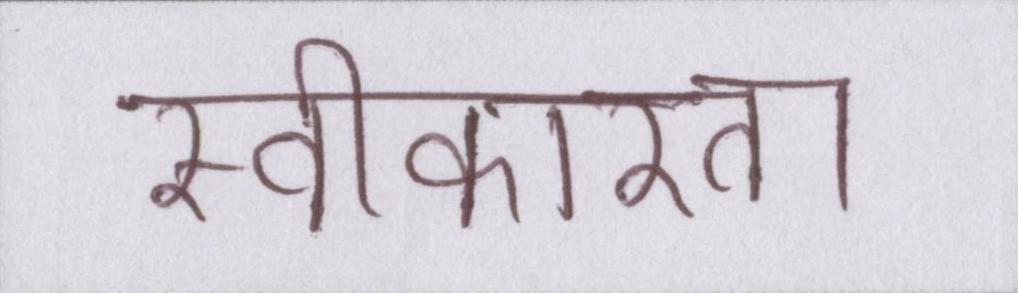 स्वीकारता